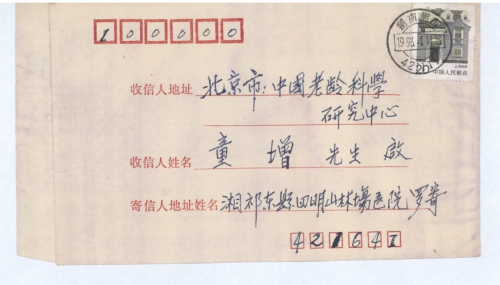 100000
收信人地址 北京市:中國老龄科學
研究中心
收信人姓名 童增先生啟
寄信人地址姓名 湘祁东縣四明山林場医院罗寄
421641
中国人民邮政